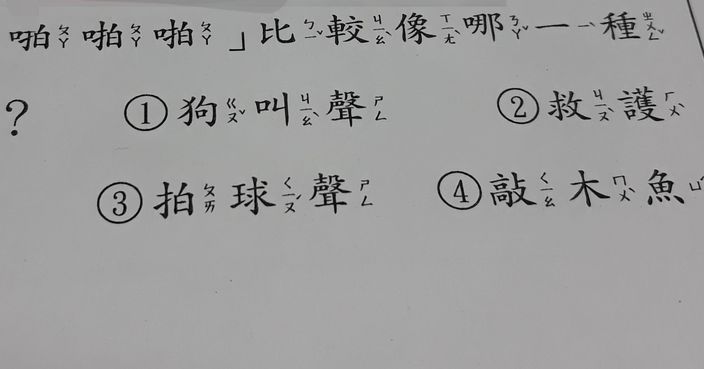 啪ㄆㄚ啪ㄆㄚ啪ㄆㄚ」比ㄅㄧˇ較ㄐㄧㄠˋ像ㄒㄧㄤˋ哪ㄋㄚˇ一ㄧˋ種ㄓㄨㄥˇ
？ ①狗ㄍㄡˇ叫ㄐㄧㄠˋ聲ㄕㄥ ②救ㄐㄧㄡˋ護ㄏㄨˋ
③拍ㄆㄞ球ㄑㄧㄡˊ聲ㄕㄥ ④敲ㄑㄧㄠ木ㄇㄨˋ魚ㄩˊ